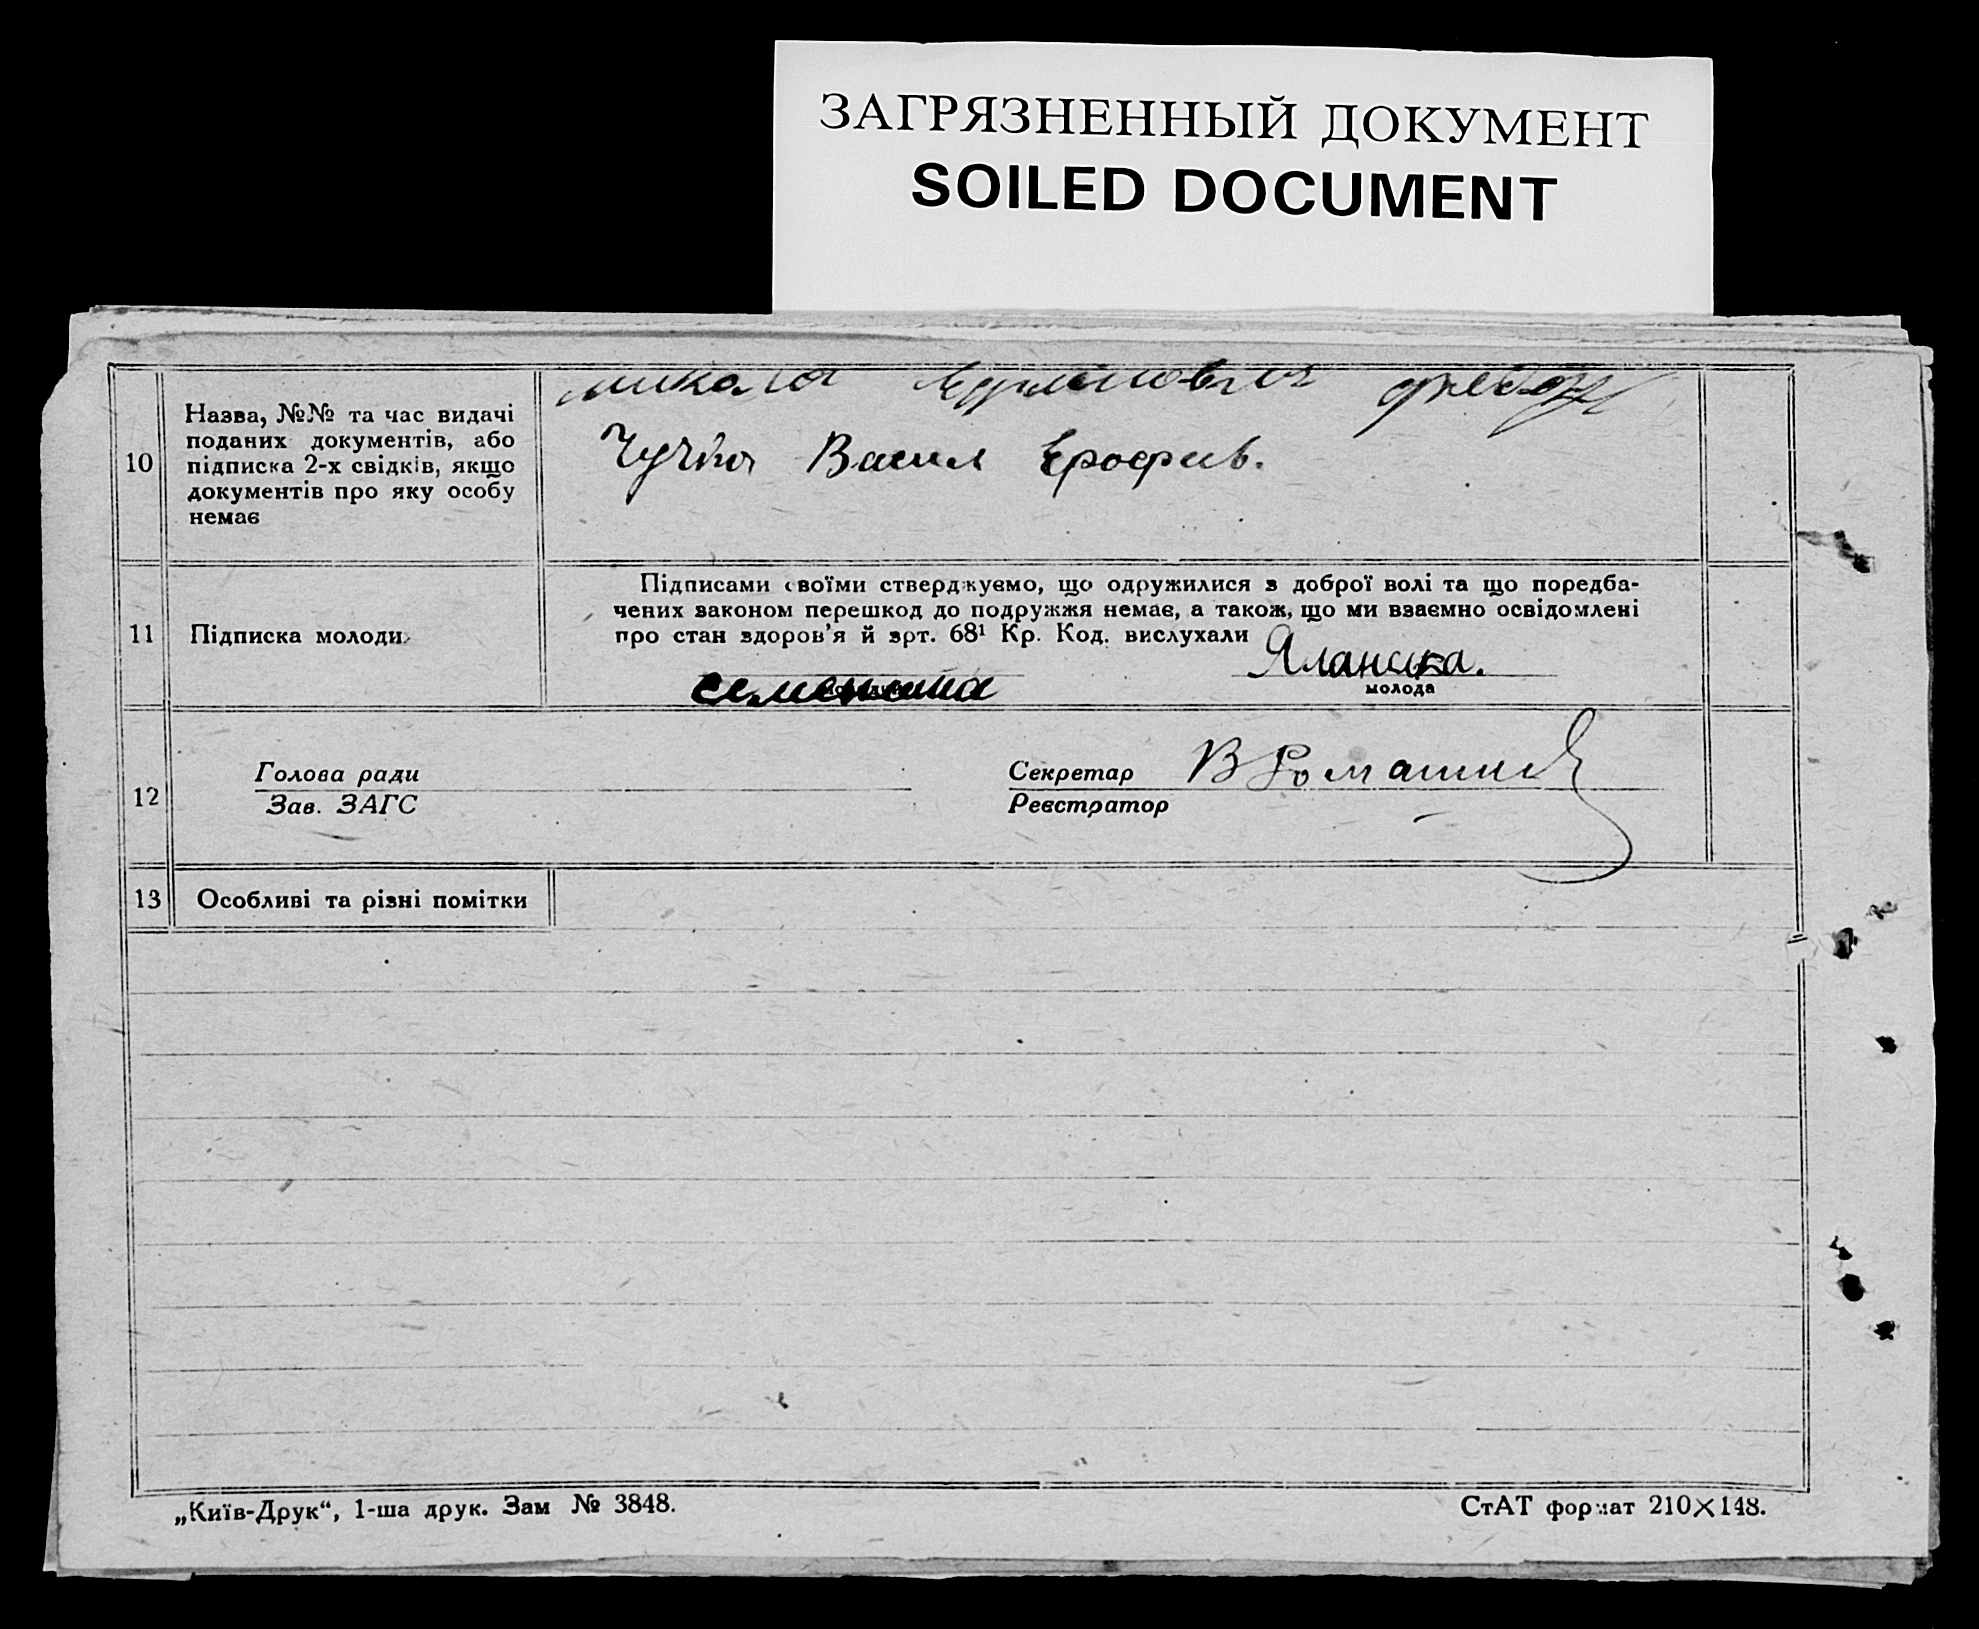 ЗАГРЯЗНЕННЫЙ ДОКУМЕНТ
SOILED DOCUMENT
10
Назва, №№ та час видачі
поданих документів, або
підписка 2-х свідків, якщо
документів про яку особу
немає
микола
Василь
11
Підписка молоди
Підписами своїми стверджуємо, що одружилися з доброї волі та що передба-
чених законом перешкод до подружжя немає, а також, що ми взаємно освідомлені
про стан здоров'я й арт. 68¹ Кр. Код. вислухали
Яланська.
молода
12
Голова ради
Зав. ЗАГС
Секретар
Реєстратор
13
Особливі та різні помітки
„Київ-Друк“, 1-ша друк. Зам № 3848.
СтАТ формат 210×148.